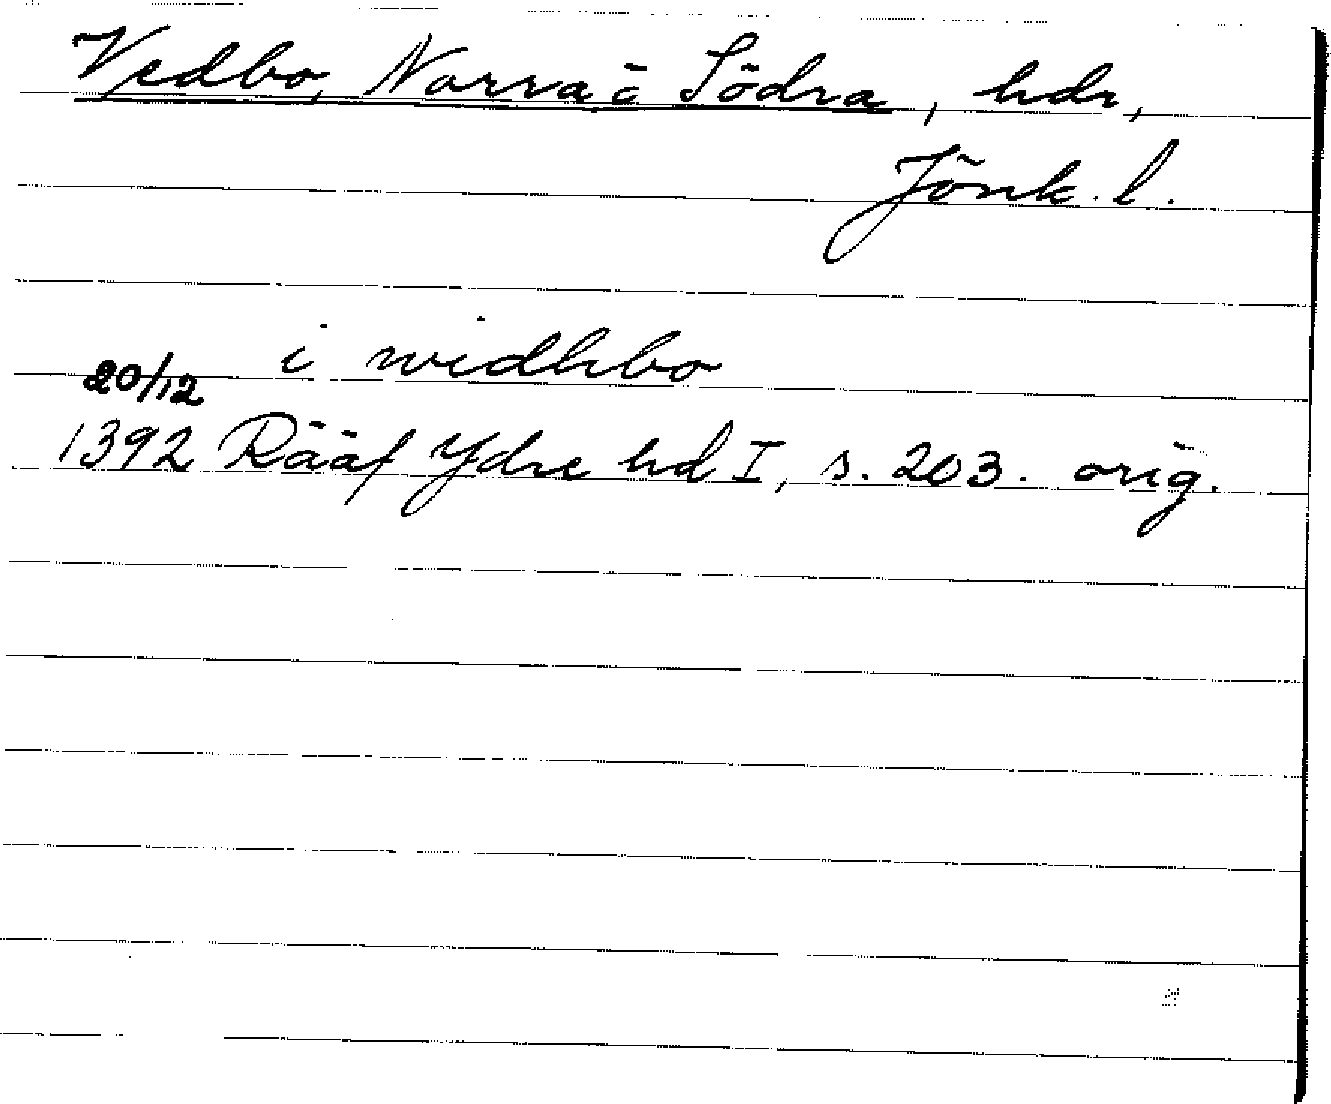 Vedbo, Norra o Södra, hdr,
Jönk. l.
i widhbo
20/12
1392 Rääf Ydre hd I, s. 203. orig.